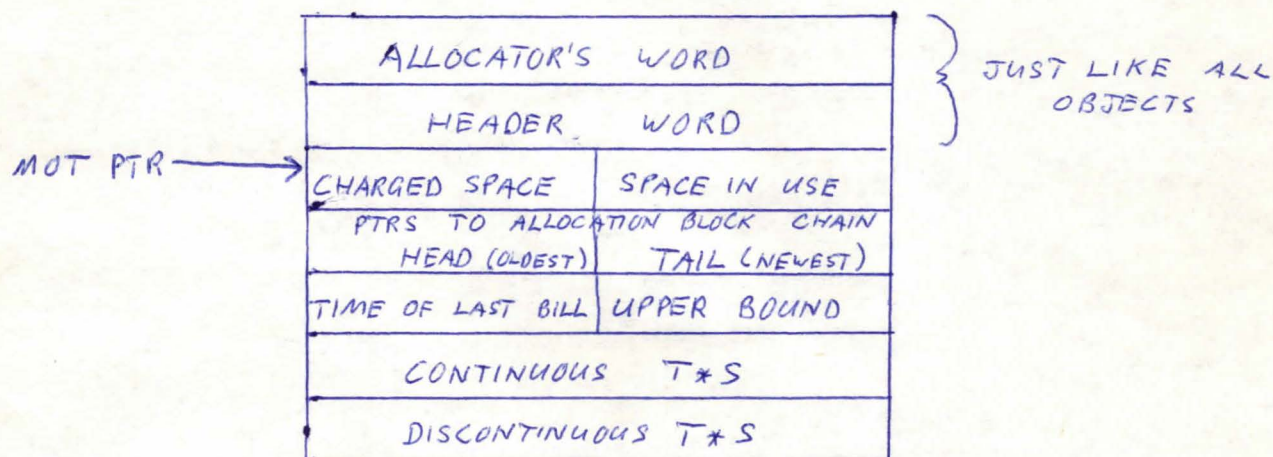 ALLOCATOR'S WORD
HEADER WORD
JUST LIKE ALL
OBJECTS
MOT PTR
CHARGED SPACE SPACE IN USE
PTRS TO ALLOCATION BLOCK CHAIN
HEAD (OLDEST) TAIL (NEWEST)
TIME OF LAST BILL UPPER BOUND
CONTINUOUS T*S
DISCONTINUOUS T*S